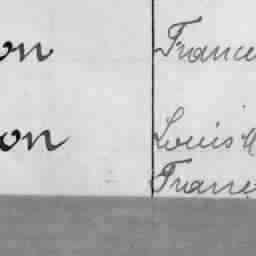 on Franc
on Louis
Franc